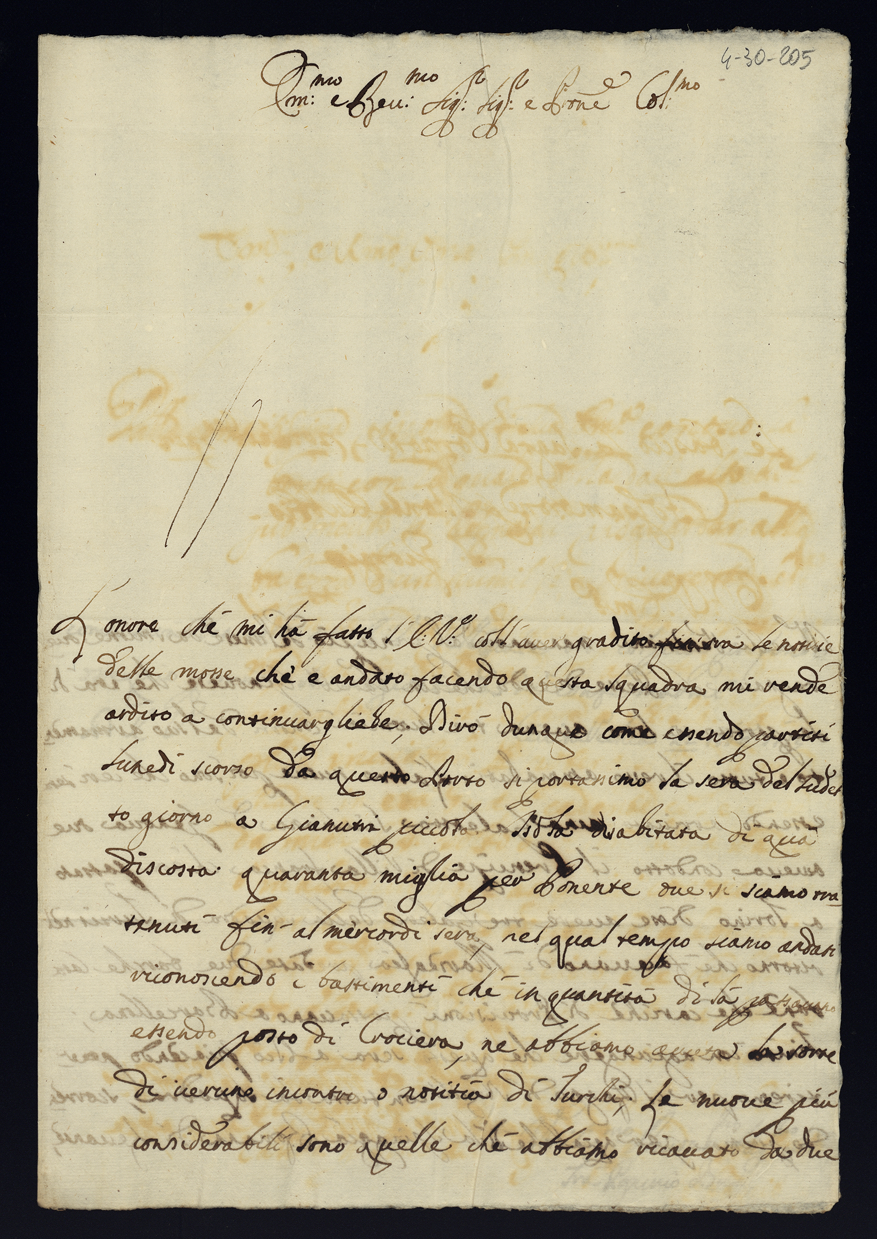 4-30-205
Em:mo e Reu:mo Sig:r Sig:r e Pro͞ne Col:mo
L'onore che mi hà fatto l'E:V:a coll'auer gradito le notitie
delle mosse che è andato facendo questa squadra mi rende
ardito a continuargliele, Dirò dunque come essendo partiti
Lunedì scorso da questo Porto si portassimo la sera del sudet
to giorno a Gianutri piccola Isola disabitata di quà
discosta quaranta miglia per Ponente oue si siamo tra
tenuti fin' al mercordì sera, nel qual tempo siamo andati
riconoscendo i bastimenti che in quantità di là passauano
essendo posto di Crociera, ne abbiamo auuta la sorte
di uerune incontro o notitia di Turchi, Le nuoue più
considerabili sono quelle che abbiamo ricauato da due